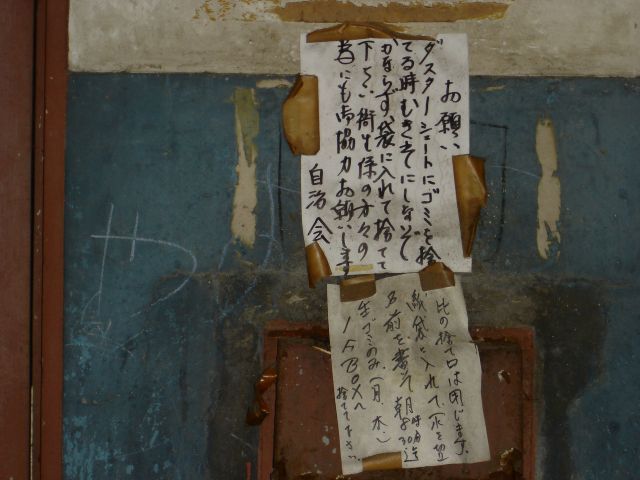 お願い
ダスターシュートにゴミを捨
てる時むき出てにしないで
かならず、袋に入れて捨てて
下さい衛生係の方々の
為にも御協力お願いします
自治会
此の捨て口は閉じます、
紙袋に入れて(水を切
名前を書いて朝
8時30分迄
生ゴミのみ(月、木、)
1F BOXへ
捨てて下さい